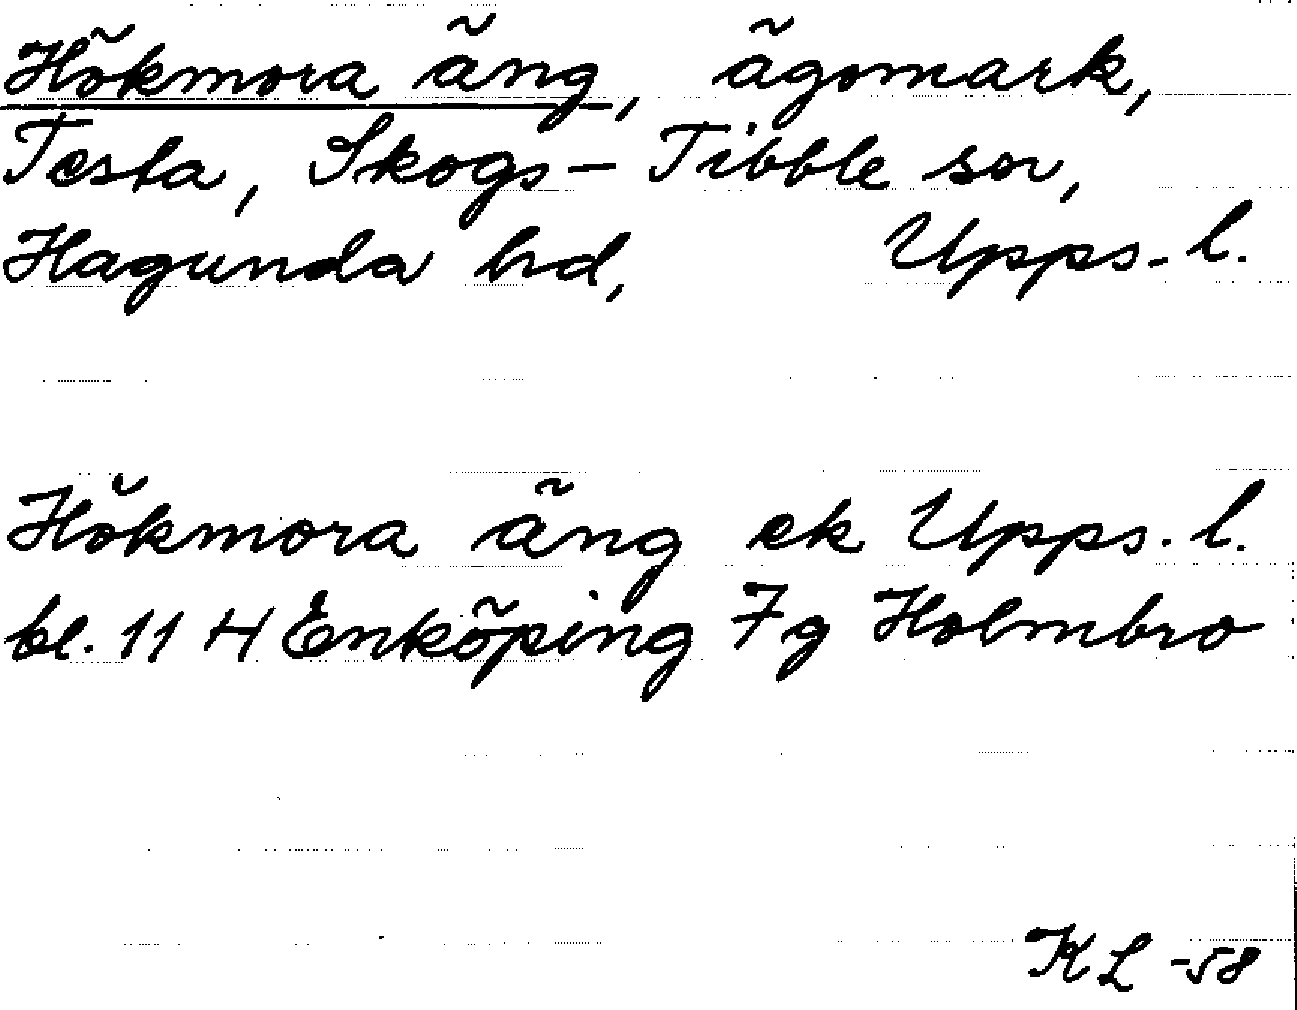 Hökmora äng, ägomark,
Testa, Skogs-Tibble sn,
Hagunda hd, Upps. l.
Hökmora äng ek Upps. l.
bl. 11 H Enköping 7g Holmbro
KL -58